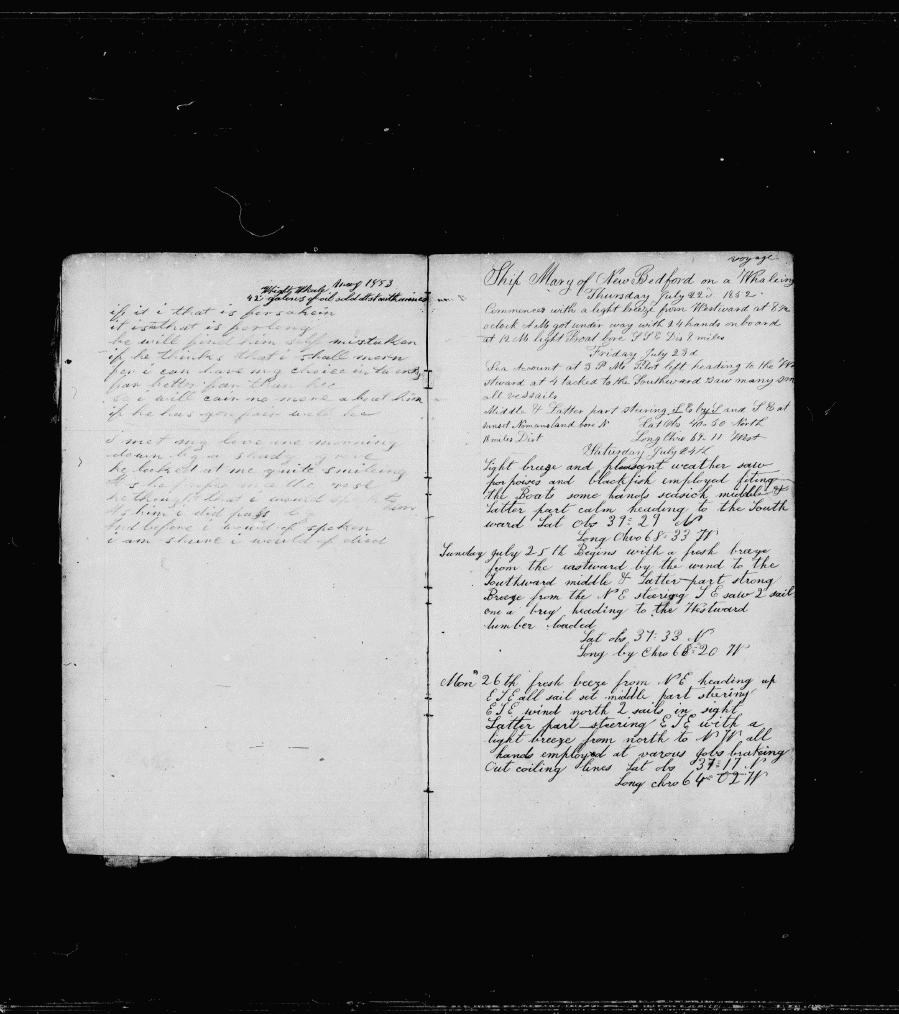 Whale May 1853
42 galons of oil sold
if it i that is forsakein
it is that is
he will find him self mistaken
if he thinks that i shall morn
for i can have my choice in
far better far than hee
i will care no more about him
if he has gon fair well he
i met my love one morning
down by a shady grove
he looked at me quite smileing
As he me the rose
he thought that i would to
As him i did pass by him
And before i would of spoken
i am shure i would of died
voyage
Ship Mary of New Bedford on a Whaleing
Thursday July 22d 1852
Commences with a light breeze from Westward at 8
oclock AM got under way with 24 hands on board
at 12 M light Boat bore S S E Dis 4 miles
Friday July 23d
Sea Account at 3 P M Pilot left heading to the We
stward at 4 tacked to the Southward saw many sm
all vessails
Middle & Latter part steering S E by S and S E at
sunset Nomansland bore N Lat Obs 40-50 North
18 miles Dist Long Chro 69-11 West
Saturday July 24th
Light breeze and pleasant weather saw
porpoises and blackfish employed fiting
the Boats some hands seasick middle &
Latter part calm heading to the South
ward Lat Obs 37=29 N
Long Chro 68=33 W
Sunday July 25th Begins with a fresh breeze
from the eastward by the wind to the
Southward middle & Latter part strong
Breeze from the N E steering S E saw 2 sail
one a brig heading to the Westward
lumber loaded
Lat obs 37=33 N
Long by Chro 68=20 W
Mon 26th fresh breeze from N E heading up
E S E all sail set middle part steering
E S E wind north 2 sails in sight
Latter part steering E S E with a
light breeze from north to N W all
hands employed at varous Jobs brakeing
Out coiling lines Lat obs 37=17 N
Long chro 64=02 W